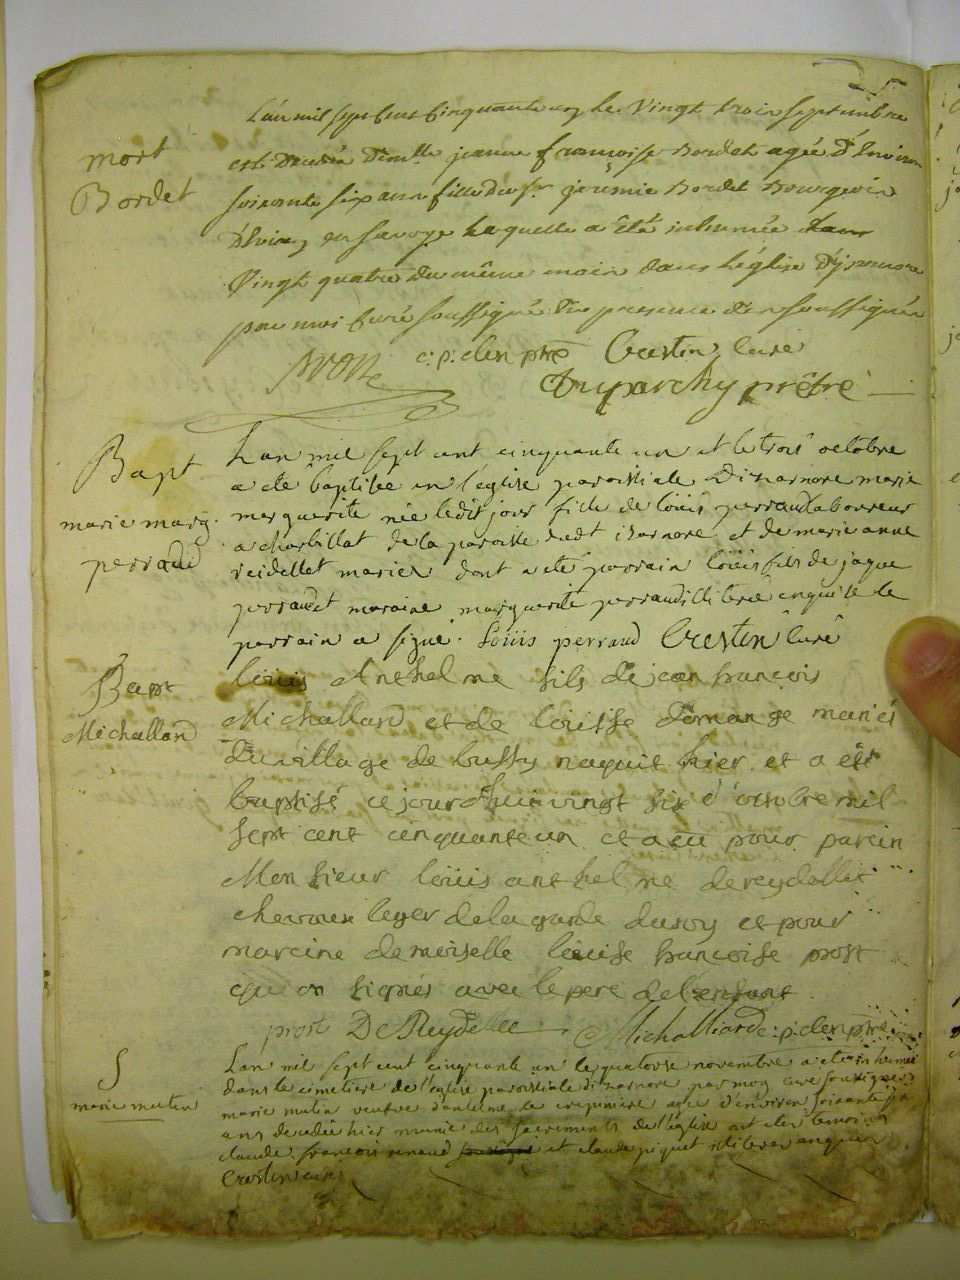 L'an mil sept cens cinquante un le Vingt trois septembre
mort
est Decedée Demlle jeanne françoise Bordet agée d'Environ
Bordet
soixante six ans fille du sr jeremie Bordet Bourgeois
en savoye Laquelle a êté inhumée
Vingt quatre du même mois dans l'église d'jzernore
par moi curé soussigné En presence des soussignés
c: p: clen ptre Crestin Curé
prêtre
Bapt
Lan mil sept cent cinquante un et le trois octobre
a eté baptisée en l'eglise paroissiale Dizarnore marie
marie marg.
marguerite née ledit jour fille de loüis perraud laboureur
a charbillat de la paroisse dudt izarnore et de marie anne
perraud
reidellet mariez dont a eté parrain loüis fils de jaque
perraud et maraine marguerite perraud illiteré enquise le
parrain a signé. Loüis perraud Crestin Curé
Bapt
loüis Anthelme fils de jean françois
Michalland
Michalland et de loüise Domange mariés
du village de bussy naquit hier et a été
baptisé ce jourd'hui vingt six d'octobre mil
sept cent cinquante un et a eu pour parein
Monsieur loüis anthelme de reydellet
leger de la garde du roy et pour
mareine demoiselle loüise françoise prost
qui on signés avec le pere de l'enfant
prost De Reydellet Michalliard c: p: clen ptre
S
Lan mil sept cent cinquante un le quatorse novembre a eté inhumée
dans le cimetiere de l'eglise paroissiale dizarnore par moy curé soussigné
marie mutin
marie mutin veufve d'antelme agée d'environ soixante
ans decedée hier munie des sacrements de l'église ont eté temoins
claude françois renaud et claude piquet illiterés enquis
Crestin curé